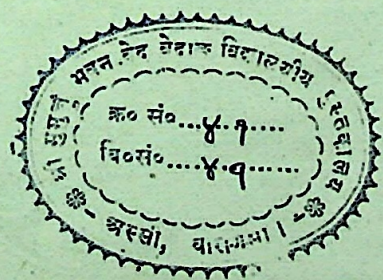 श्री मुमुक्षु भवन वेद वेदाङ्ग विद्यालयीय पुस्तकालय
क्र० सं०...४१.....
वि०सं०......४१.......
अस्सी, वाराणसी।